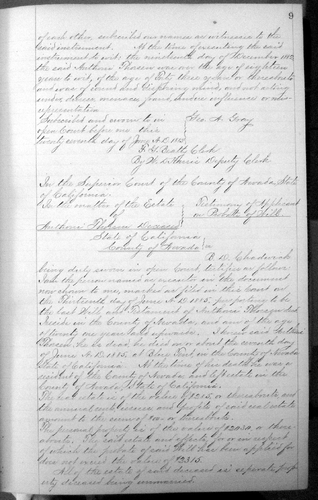 9
of each other, subscribed our names as witnesses to the
said instrument. At the time of executing the said
instrument to wit, the nineteenth day of December 1882
the said Anthoni was over the age of eighteen
years to wit, of the age of fifty three years or thereabouts
and was of sound and disposing mind, and not acting
under duress menace fraud, undue influence or misrepresentation
Subscribed and sworn to in
open Court before me this
twenty seventh day of June A.D. 1885
Geo. A. Gray
F. G. Beatty Clerk
By W. D. Harris Deputy Clerk
In the Superior Court of the County of Nevada, State
of California.
In the matter of the Estate
of
Anthoni Deceased
Testimony of Applicant
on Probate of Will
State of California
County of Nevada ss
B. D. Chadwick
being duly sworn in open Court testifies as follows
I am the person named as executor in the document
now shown to me, marked as filed in this Court on
the Thirteenth day of June A.D. 1885, purporting to be
the last Will and Testament of Anthoni
I reside in the County of Nevada, and am of the age
of twenty one years and upwards. I knew said Anthoni
he is dead, he died on or about the seventh day
of June A.D. 1885, at in the County of Nevada
State of California. At the time of his death he was a
resident of the County of Nevada and left estate in the
County of Nevada, State of California.
The real estate is of the value of $1215. or thereabouts, and
the annual rents, issues and profits of said real estate
amount to the sum of or thereabouts.
The personal property is of the value of or there-
abouts, the said estate and effects for or in respect
of which the probate of said Will has been applied for
does not exceed the value of $2315.
All of the estate of said deceased is separate prop-
erty deceased being unmarried